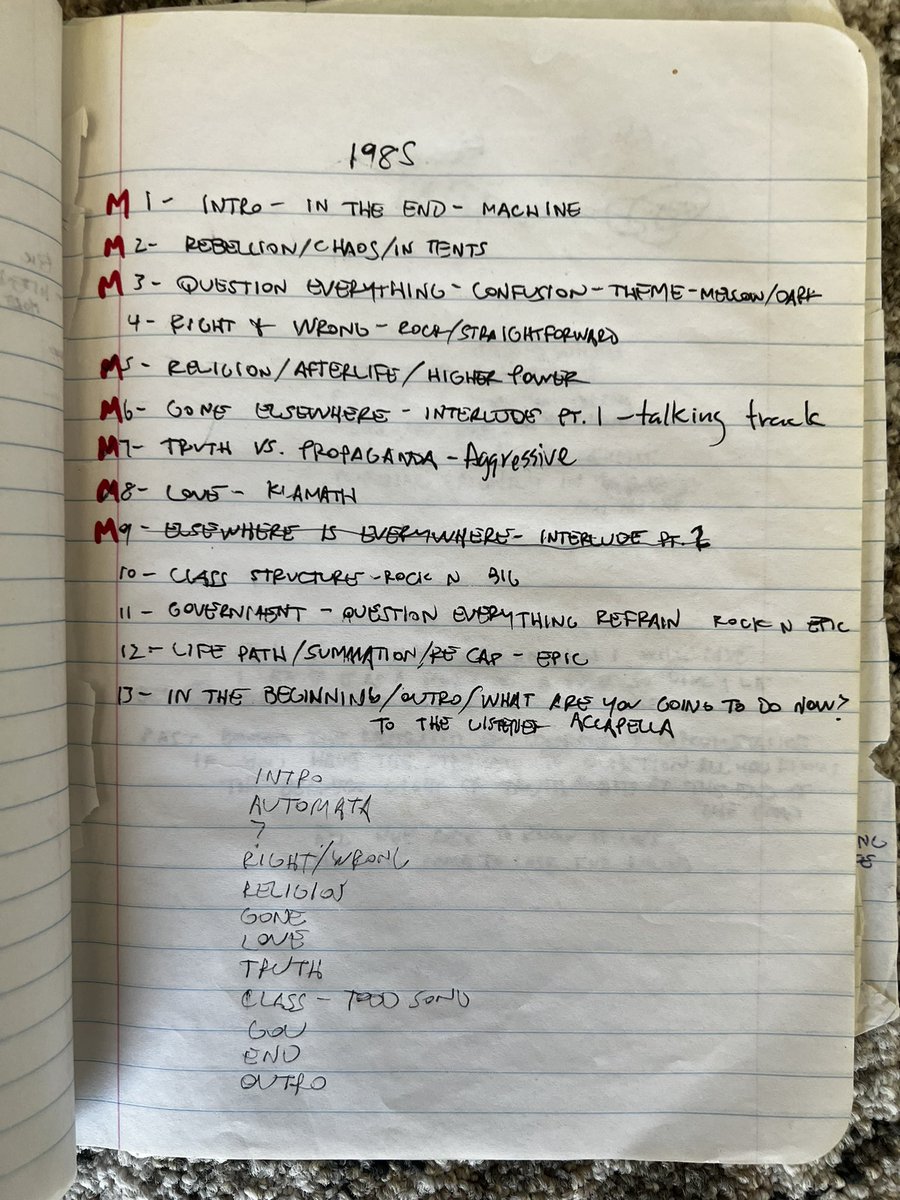 1985
M 1- INTRO- IN THE END- MACHINE
M 2- REBELLION/CHAOS/IN TENTS
M 3- QUESTION EVERYTHING- CONFUSION- THEME- MELLOW/DARK
4- RIGHT & WRONG- ROCK/STRAIGHTFORWARD
M 5- RELIGION/AFTERLIFE/HIGHER POWER
M 6- GONE ELSEWHERE- INTERLUDE PT. 1 -talking track
M 7- TRUTH VS. PROPAGANDA- Aggressive
M 8- LOVE- KLAMATH
M 9- ELSEWHERE IS EVERYWHERE- INTERLUDE PT. 2
10- CLASS STRUCTURE- ROCK N BIG
11- GOVERNMENT - QUESTION EVERYTHING REFRAIN ROCK N EPIC
12- LIFE PATH/SUMMATION/RE CAP - EPIC
13- IN THE BEGINNING/OUTRO/WHAT ARE YOU GOING TO DO NOW?
TO THE LISTENER ACCAPELLA
INTRO
AUTOMATA
?
RIGHT/WRONG
RELIGION
GONE
LOVE
TRUTH
CLASS - TODD SONG
GOV
END
OUTRO